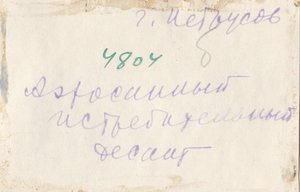 г. Петрусов
4804
Аэросанный
истребительный
десант